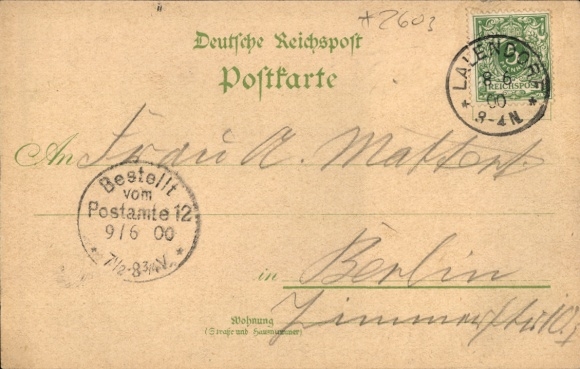 *2603
Deutsche Reichspost
Postkarte
5
REICHSPOST
* LALENDORF *
8 6
00
3-4N
An Frau A. Mattert
Bestellt
vom
Postamte 12
9/6 00
* 7½-8¾V. *
in Berlin
Wohnung
(Straße und Hausnummer)